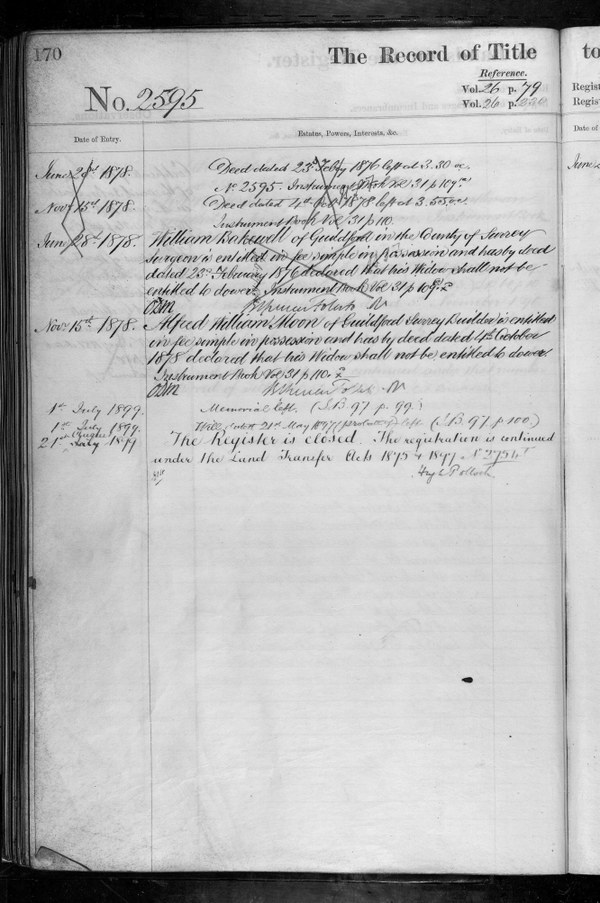 170
The Record of Title
to
Reference.
Vol. 26 p. 79
No. 2595
Vol. 26 p.
Regist
Regis
Date of Entry.
Estates, Powers, Interests, &c.
Date of
June 1878. Deed dated 23rd Feby 1876 left at 3.30
No 2595. Instrument Book Vol 31 p 109
Novr 15th 1878. Deed dated 4th 1878 left at 3.55
Instrument Book Vol 31 p 110.
June 28th 1878. William Bakewell of Guildford in the County of Surrey
Surgeon is entitled in fee simple in possession and has by deed
dated 23rd February 1876 declared that his Widow shall not be
entitled to dower Instrument Book Vol 31 p 109
Novr 15th 1878. Alfred William Moon of Guildford Surrey Builder is entitled
in fee simple in possession and has by deed dated 4th October
1878 declared that his Widow shall not be entitled to dower
Instrument Book Vol 31 p 110.
1st July 1899. Memorial left. (I.B. 97 p. 99.)
1st July 1899. Will dated 21st May 1897 left (I.B. 97. p 100.)
21st August 1899 The Register is closed. The registration is continued
under the Land Transfer Acts 1875 & 1897 No